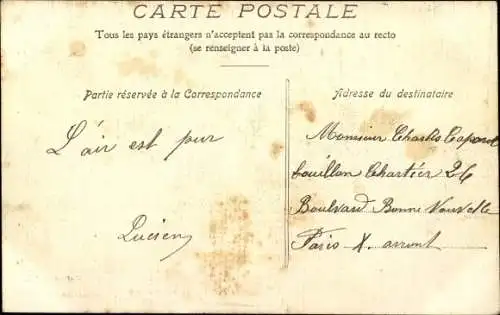 CARTE POSTALE
Tous les pays étrangers n'acceptent pas la correspondance au recto
(se renseigner à la poste)
Partie réservée à la Correspondance
Adresse du destinataire
L'air est pur
Lucien
Monsieur Charles
bouillon Chartier 26
Boulvard Bonne Nouvelle
Paris X. arront